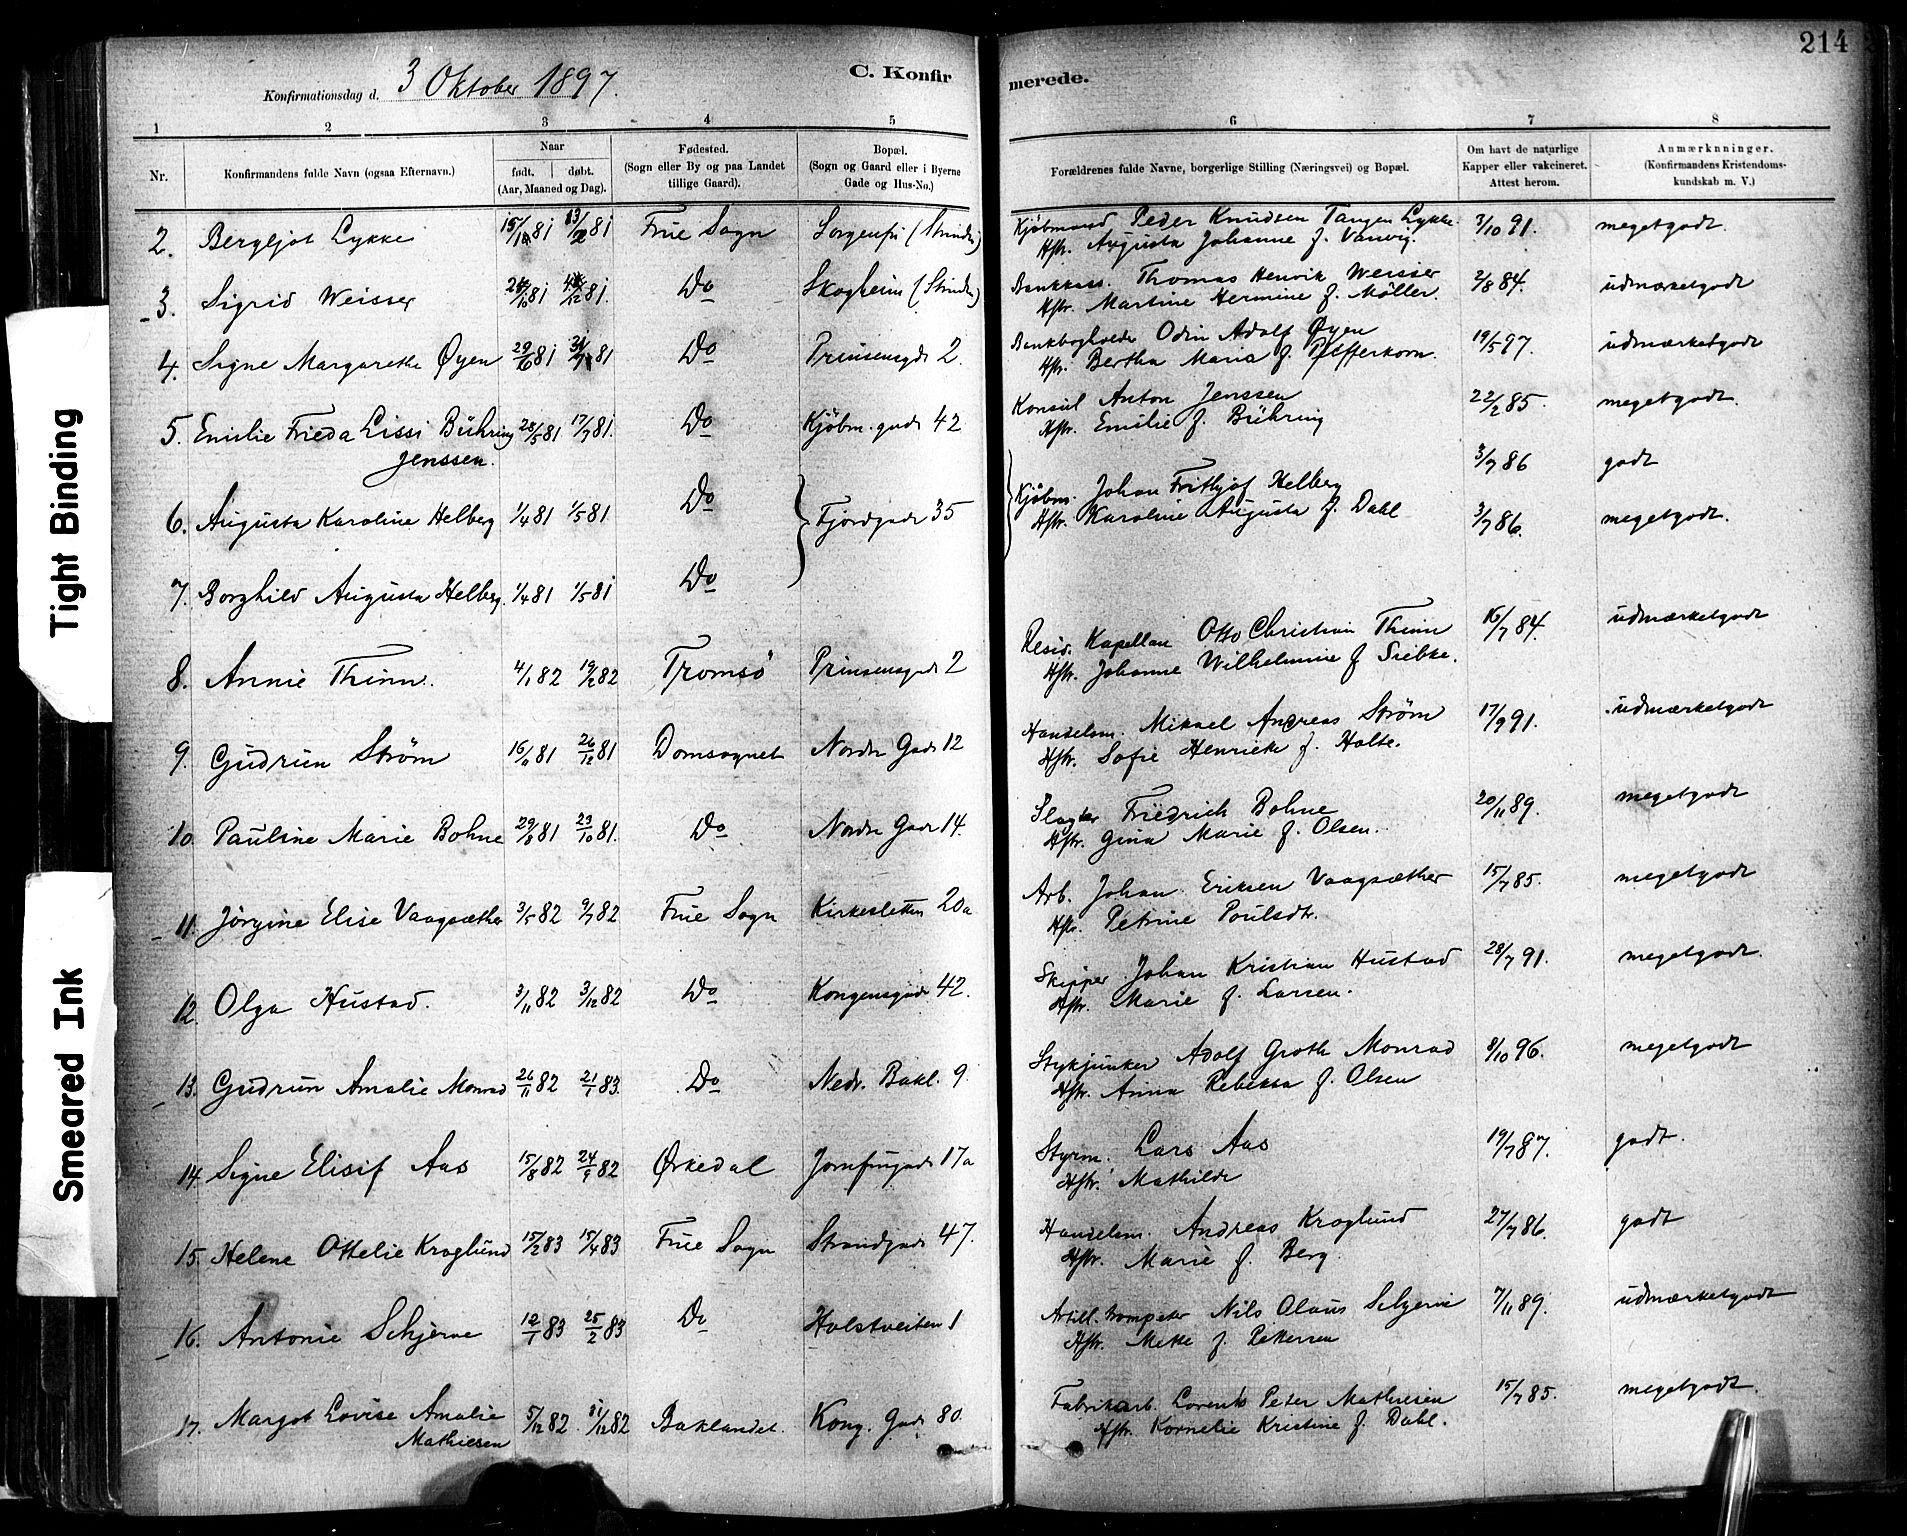 214
3 Oktober 1897.
Konfirmationsdag d.
C. Konfir
merede.
1 2 3 4 5 6 7 8
Nr.
Konfirmandens fulde Navn (ogsaa Efternavn.)
Naar
født. døbt.
(Aar, Maaned og Dag).
Fødested.
(Sogn eller By og paa Landet
tillige Gaard).
Bopæl.
(Sogn og Gaard eller i Byerne
Gade og Hus-No.)
Forældrenes fulde Navne, borgerlige Stilling (Næringsvei) og Bopæl.
Om havt de naturlige
Kapper eller vakcineret.
Attest herom.
Anmærkninger.
(Konfirmandens Kristendoms-
kundskab m. V.)
2. Bergljot Lykke 81 81 Frue Sogn Sorgenfri (Strinden) Kjøbmand Peder Knudsen Tangen Lykke 3/10 91. megetgodt.
Hstr. Augusta Johanne f. Vanvig.
3. Sigrid Weisser 81 81. Do Skogheim (Strinden) Thomas Henrik Weisser 2/8 84. udmærketgodt
Hstr. Martine Hermine f. Möller.
4. Signe Margarethe Øyen 29/6 81 31/7 81 Do Prinsensgd. 2. Bankbogholder Odin Adolf Øyen 19/5 97. udmærketgodt
Hstr. Bertha Maria f. Pfefferkorn.
5. Emilie Frieda Lissi Bühring 28/5 81 17/7 81. Do Kjöbm. gade 42 Konsul Anton Jenssen 22/2 85. megetgodt.
Jenssen. Hstr. Emilie f. Bühring
6. Augusta Karoline Helberg 1/4 81 1/5 81 Do Fjordgade 35 Kjøbm. Johan Frithjof Helberg 3/7 86 godt
Hstr. Karoline Augusta f. Dahl 3/7 86. megetgodt.
7. Borghild Augusta Helberg. 1/4 81 1/5 81 Do
8. Annie Thinn. 4/1 82 19/2 82 Tromsö Prinsensgade 2 Resid. Kapellan Otto Christian Thinn 16/7 84. udmærketgodt
Hstr. Johanne Wilhelmine f. Siebke.
9. Gudrun Strøm 16/11 81 26/12 81 Domsognet Nordre Gade 12 Handelsm. Mikael Andreas Strøm 17/9 91. udmærketgodt
Hstr. Sofie Henrieke f. Holte.
10. Pauline Marie Bohne 29/8 81 23/10 81. Do Nordre Gade 14. Slagter Friedrich Bohne 20/11 89. megetgodt
Hstr. Gina Marie f. Olsen.
11. Jörgine Elise Vaagsæther 3/5 82 9/7 82 Frue Sogn Kirkesletten 20a Arb. Johan Eriksen Vaagsæther 15/7 85. megetgodt
Hstr. Petrine Poulsdtr.
12. Olga Hustad. 3/11 82 3/12 82 Do Kongensgade 42. Skipper Johan Kristian Hustad 28/7 91. megetgodt.
Hstr. Marie f. Larsen.
13. Gudrun Amalie Monrad 26/11 82 21/1 83. Do Nedr. Bakl. 9. Stykjunker Adolf Groth Monrad 8/10 96. megetgodt
Hstr. Anna Rebekka f. Olsen
14. Signe Elisif Aas 15/8 82 24/9 82 Ørkedal Jomfrugade 17a Styrm. Lars Aas 19/7 87. godt.
Hstr. Mathilde
15. Helene Ottelie Kroglund 15/2 83 15/4 83 Frue Sogn Strandgade 47. Handelsm. Andreas Kroglund 27/7 86. godt
Hstr. Marie f. Berg.
16. Antonie Schjerve 12/1 83 25/2 83 Do Holstveiten 1 Artill. trompeter Nils Olaus Schjerve 7/11 89. udmærketgodt
Hstr. Mette f. Pettersen
17. Margot Lovise Amalie 5/12 82 31/12 82 Baklandet. Kong. Gade 80. Fabrikarb. Lorents Peter Mathiesen 15/7 85. megetgodt.
Mathiesen Hstr. Kornelie Kristine f. Dahl.
Tight Binding
Smeared Ink